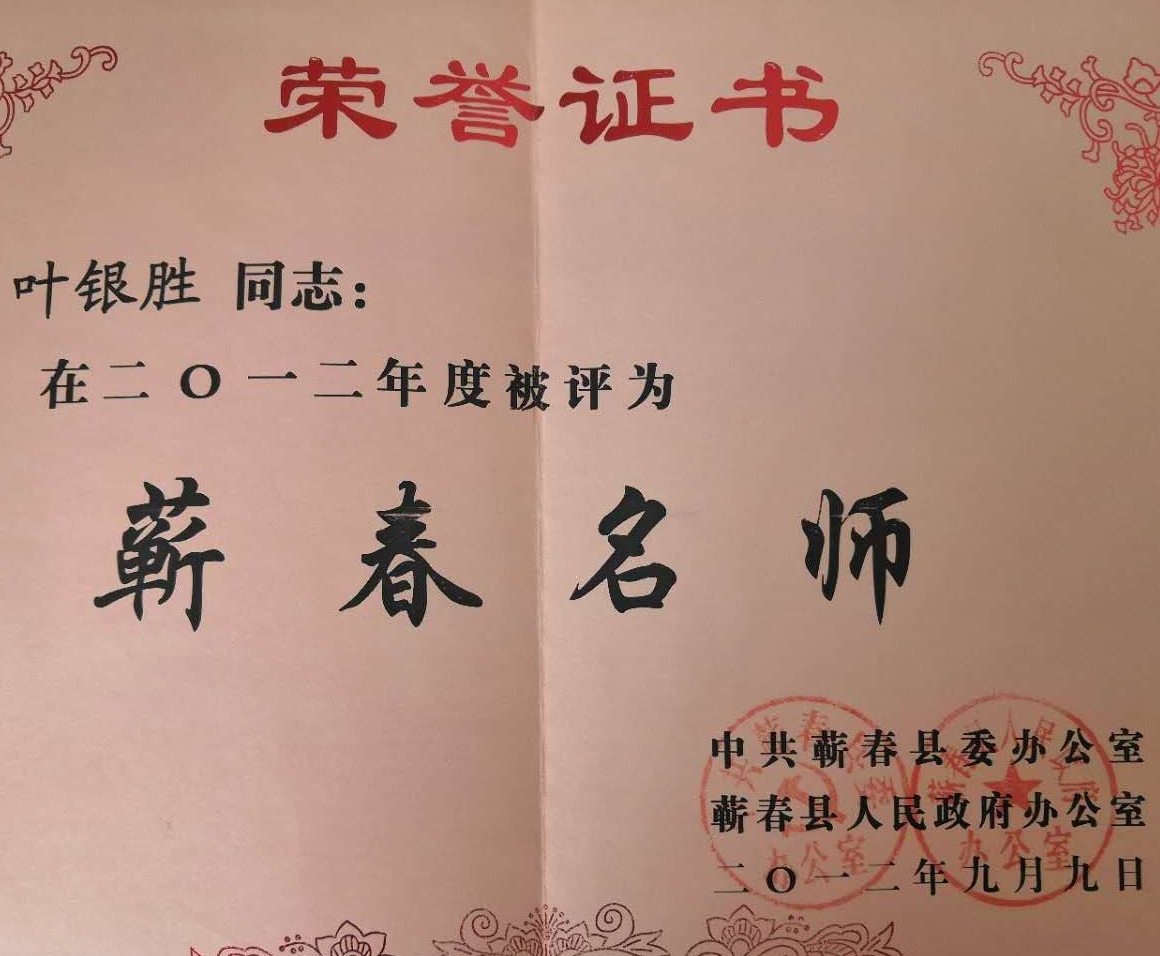 荣誉证书
叶银胜 同志：
在二〇一二年度被评为
蕲春名师
中共蕲春县委办公室
蕲春县人民政府办公室
二〇一二年九月九日
办公室
办公室